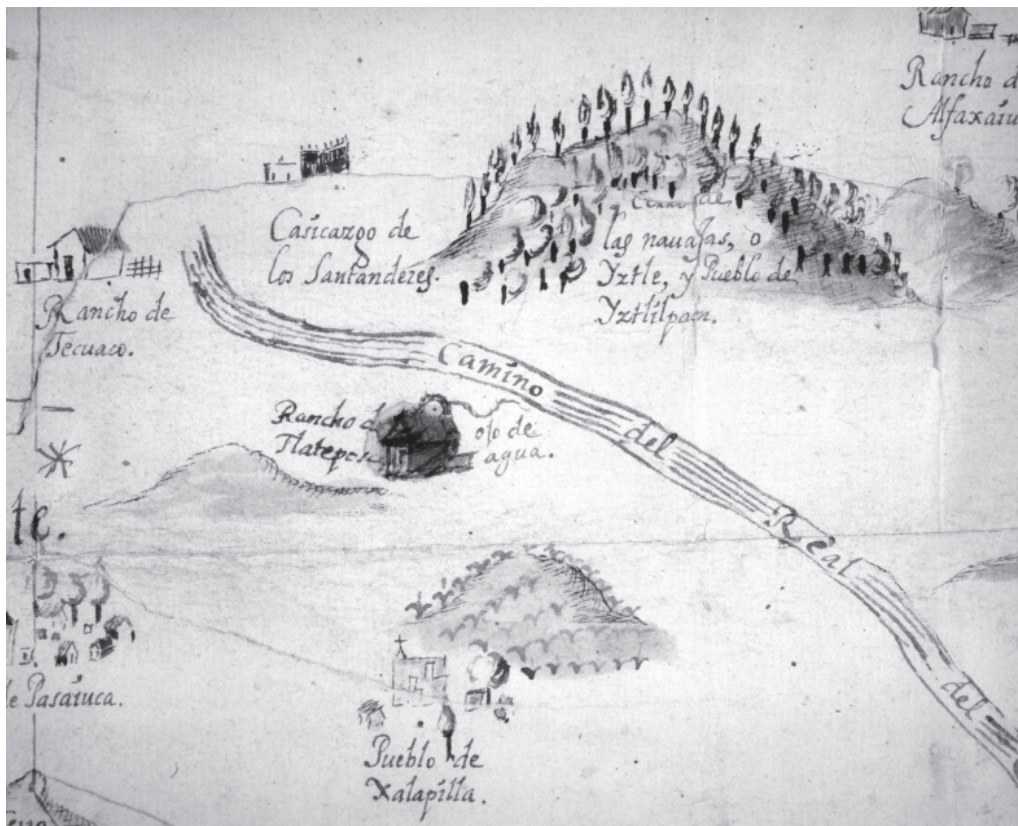 Rancho d
Alfaxaiu
Casicazgo de
los Santanderes.
Cerro de
las nauajas, o
Yztle, y Pueblo de
Yztlilpam.
Rancho de
Tecuaco.
Camino del Real del
Rancho d
Tlatepes
ojo de
agua.
te.
de Pasaiuca.
Pueblo de
Xalapilla.